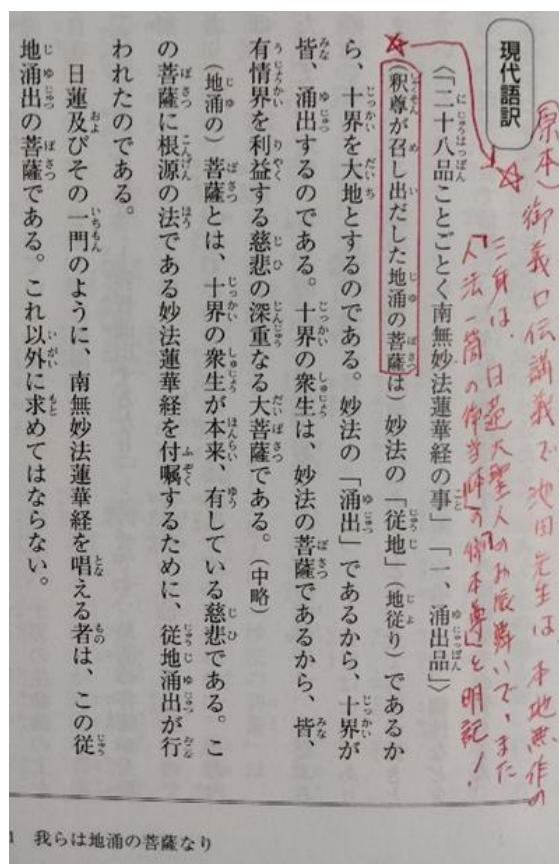 現代語訳
原本)御義口伝講義で池田先生は、本地無作の
三身は、日蓮大聖人のお振舞いで、また
「人法一箇の御当体の御本尊」と明記!
〈「二十八品ことごとく南無妙法蓮華経の事」「一、涌出品」〉
(釈尊が召し出だした地涌の菩薩は)妙法の「従地」(地従り)であるか
ら、十界を大地とするのである。妙法の「涌出」であるから、十界が
皆、涌出するのである。十界の衆生は、妙法の菩薩であるから、皆、
有情界を利益する慈悲の深重なる大菩薩である。(中略)
(地涌の)菩薩とは、十界の衆生が本来、有している慈悲である。こ
の菩薩に根源の法である妙法蓮華経を付嘱するために、従地涌出が行
われたのである。
日蓮及びその一門のように、南無妙法蓮華経を唱える者は、この従
地涌出の菩薩である。これ以外に求めてはならない。
1 我らは地涌の菩薩なり